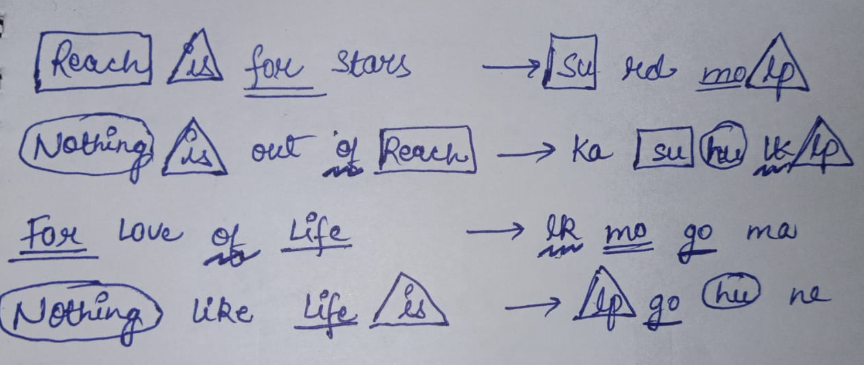 Reach is for stars → su rd mo lp
Nothing is out of Reach → ka su hu lk lp
For Love of Life → lk mo go ma
Nothing like Life is → lp go hu ne